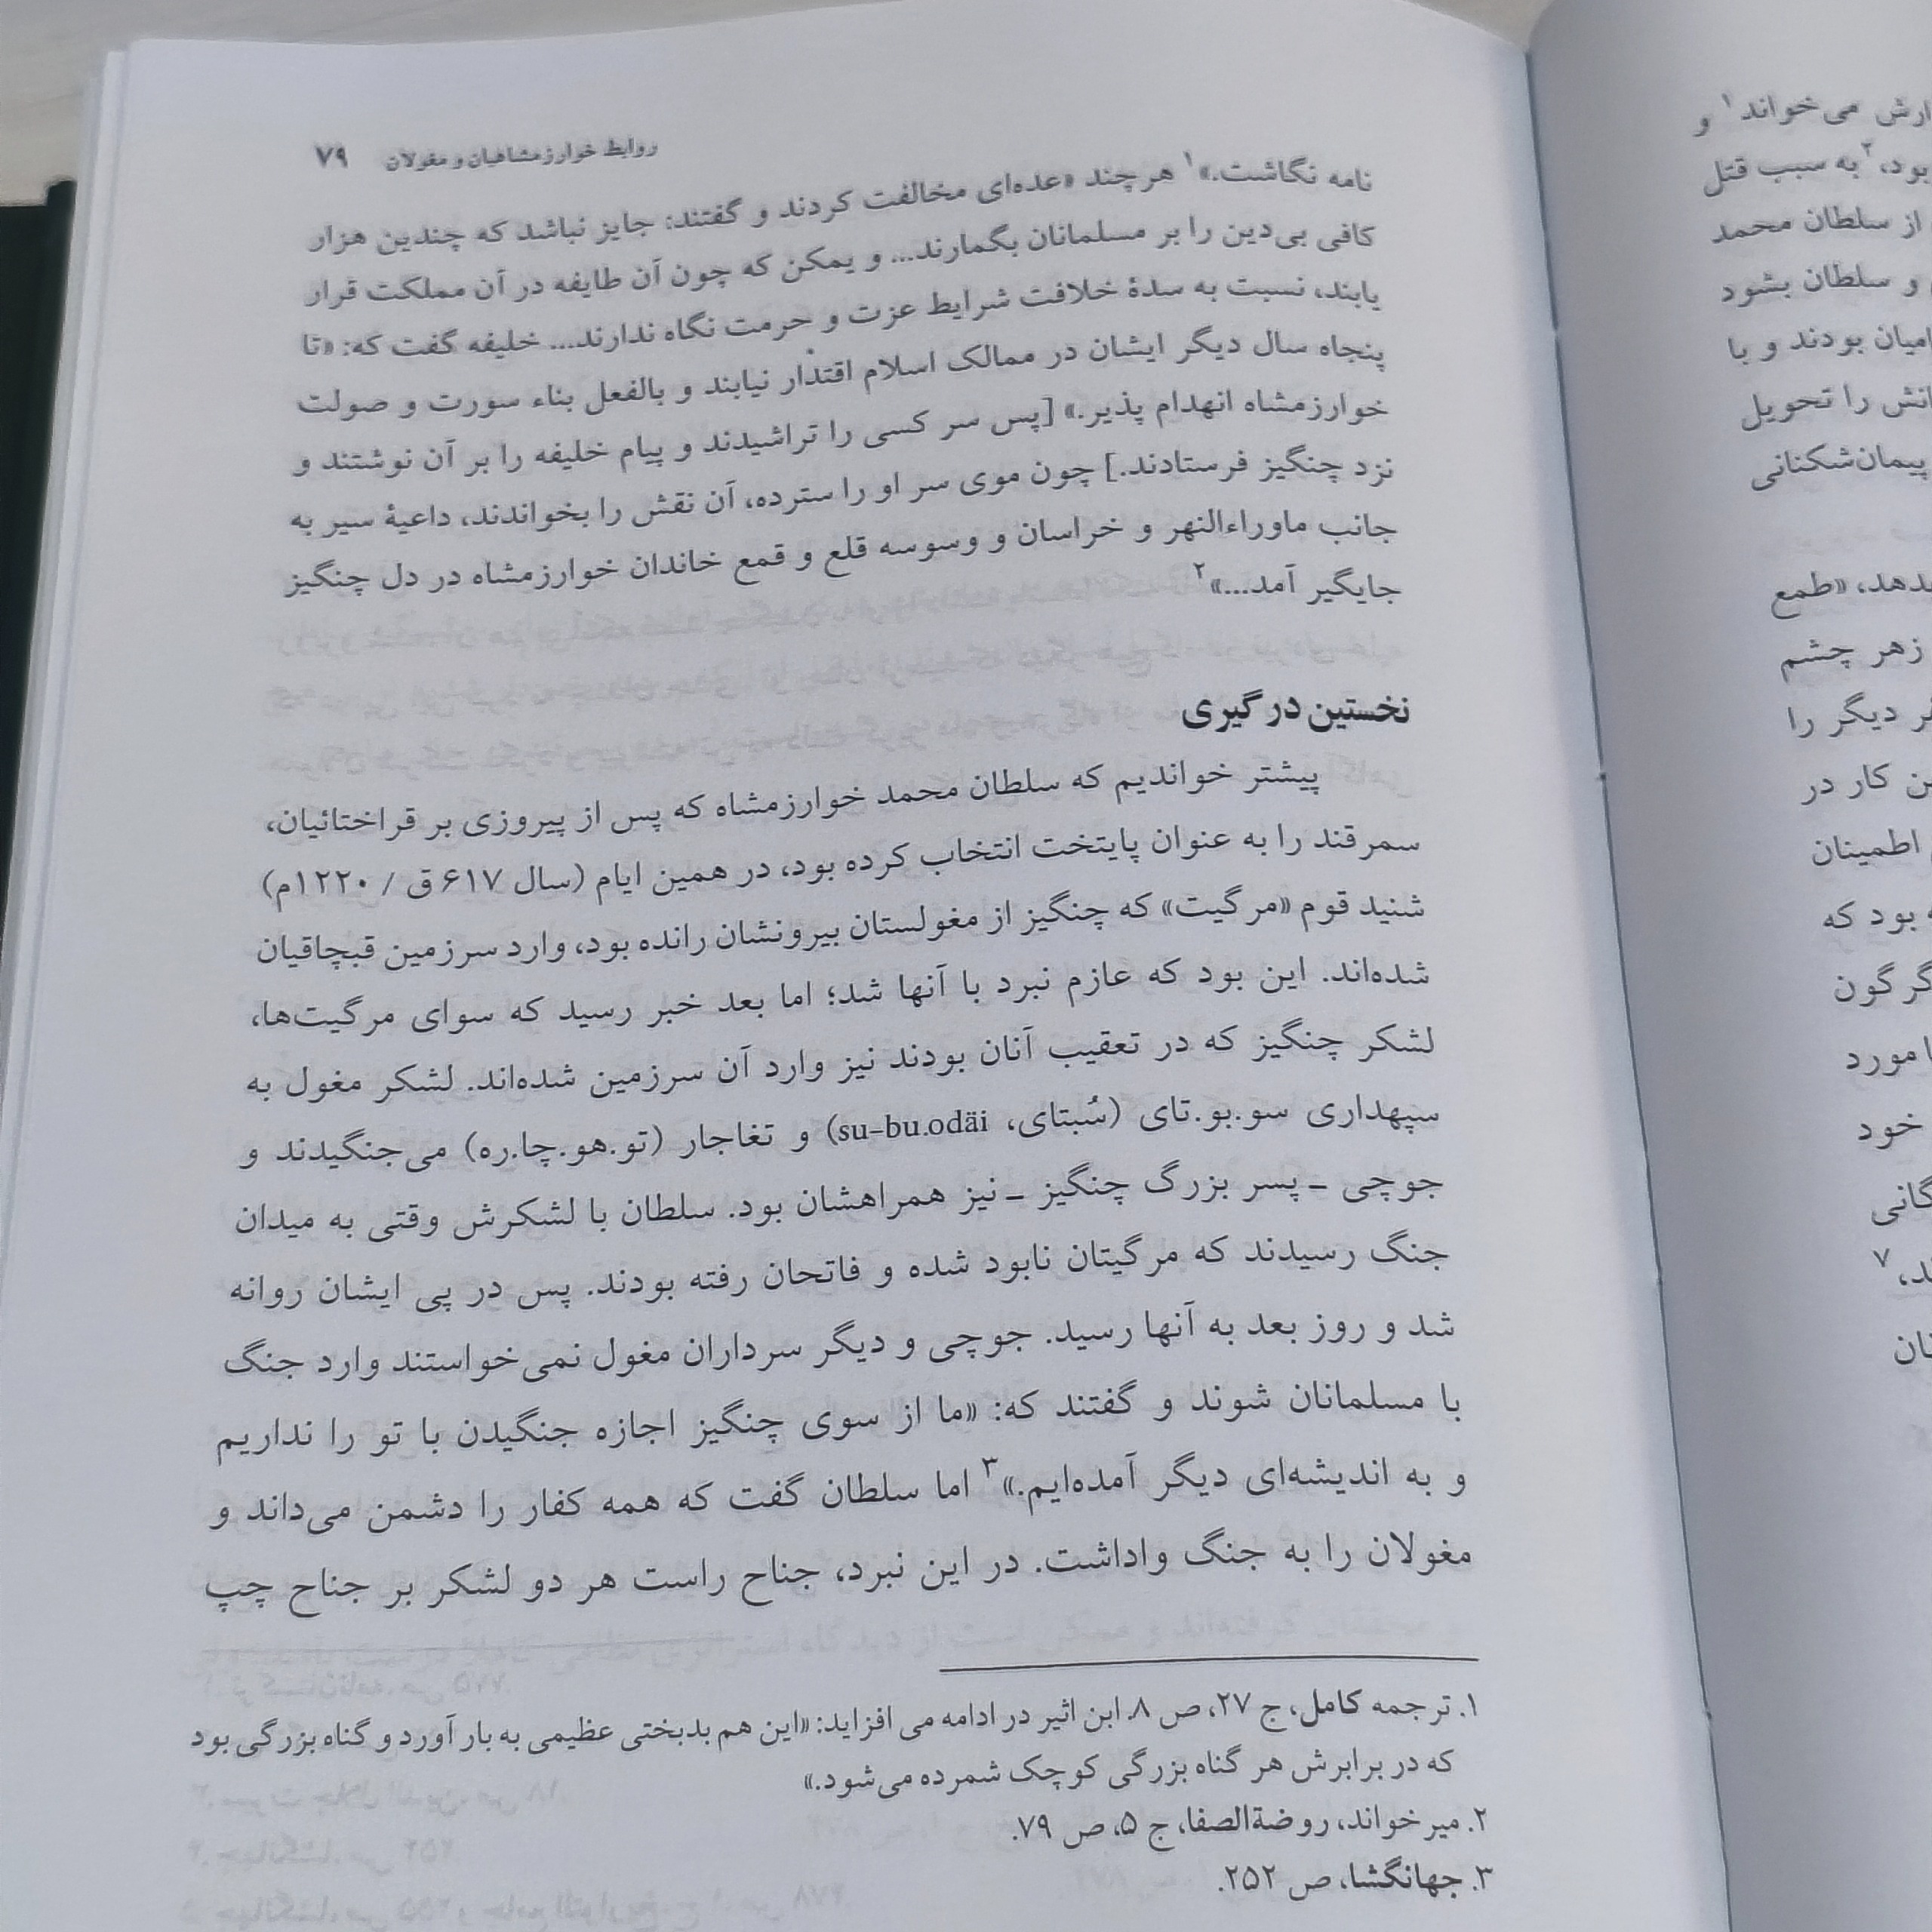 روابط خوارزمشاهیان و مغولان ۷۹
نامه نگاشت.»۱ هرچند «عده‌ای مخالفت کردند و گفتند: جایز نباشد که چندین هزار
کافی بی‌دین را بر مسلمانان بگمارند... و یمکن که چون آن طایفه در آن مملکت قرار
یابند، نسبت به سدهٔ خلافت شرایط عزت و حرمت نگاه ندارند... خلیفه گفت که: «تا
پنجاه سال دیگر ایشان در ممالک اسلام اقتدار نیابند و بالفعل بناء سورت و صولت
خوارزمشاه انهدام پذیر.» [پس سر کسی را تراشیدند و پیام خلیفه را بر آن نوشتند و
نزد چنگیز فرستادند.] چون موی سر او را سترده، آن نقش را بخواندند، داعیهٔ سیر به
جانب ماوراءالنهر و خراسان و وسوسه قلع و قمع خاندان خوارزمشاه در دل چنگیز
جایگیر آمد...»۲
نخستین درگیری
پیشتر خواندیم که سلطان محمد خوارزمشاه که پس از پیروزی بر قراختائیان،
سمرقند را به عنوان پایتخت انتخاب کرده بود، در همین ایام (سال ۶۱۷ ق / ۱۲۲۰م)
شنید قوم «مرگیت» که چنگیز از مغولستان بیرونشان رانده بود، وارد سرزمین قبچاقیان
شده‌اند. این بود که عازم نبرد با آنها شد؛ اما بعد خبر رسید که سوای مرگیت‌ها،
لشکر چنگیز که در تعقیب آنان بودند نیز وارد آن سرزمین شده‌اند. لشکر مغول به
سپهداری سو.بو.تای (سُبتای، su-bu.odäi) و تغاجار (تو.هو.چا.ره) می‌جنگیدند و
جوچی ـ پسر بزرگ چنگیز ـ نیز همراهشان بود. سلطان با لشکرش وقتی به میدان
جنگ رسیدند که مرگیتان نابود شده و فاتحان رفته بودند. پس در پی ایشان روانه
شد و روز بعد به آنها رسید. جوچی و دیگر سرداران مغول نمی‌خواستند وارد جنگ
با مسلمانان شوند و گفتند که: «ما از سوی چنگیز اجازه جنگیدن با تو را نداریم
و به اندیشه‌ای دیگر آمده‌ایم.»۳ اما سلطان گفت که همه کفار را دشمن می‌داند و
مغولان را به جنگ واداشت. در این نبرد، جناح راست هر دو لشکر بر جناح چپ
۱. ترجمه کامل، ج ۲۷، ص ۸. ابن اثیر در ادامه می افزاید: «این هم بدبختی عظیمی به بار آورد و گناه بزرگی بود
که در برابرش هر گناه بزرگی کوچک شمرده می‌شود.»
۲. میرخواند، روضةالصفا، ج ۵، ص ۷۹.
۳. جهانگشا، ص ۲۵۲.
می‌خواند۱ و
بود،۲ به سبب قتل
از سلطان محمد
و سلطان بشود
بودند و با
را تحویل
پیمان‌شکنانی
«طمع
زهر چشم
دیگر را
کار در
اطمینان
بود که
مورد
خود